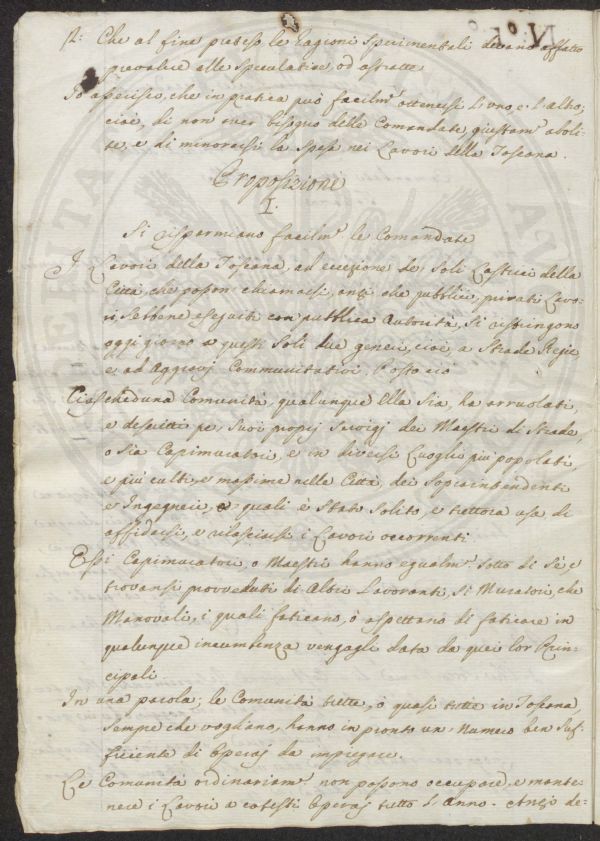 12: Che al fine preteso le Ragioni Sperimentali devano affatto
prevalere alle speculative, ed astratte.
Io asserisco, che in pratica può facilm.e ottenersi l'uno, e l'altro;
cioè, di non aver bisogno delle Comandate, giustam.e aboli-
te, e di minorarsi la Spesa nei Lavori della Toscana.
Proposizione
I.
Si risparmiano facilm.e le Comandate
I Lavori della Toscana, ad eccezione de' Soli Lastrici della
Città, che posson chiamarsi, anzi che pubblici, privati Lavo-
ri, sebbene eseguiti con pubblica Autorità, Si ristringono
oggi giorno a questi Soli due generi, cioè, a Strade Regie
e ad Aggravj Communitativi. Posto ciò
Ciascheduna Comunità, qualunque Ella Sia, ha arruolati,
e descritti pe' Suoi proprj Servigj dei Maestri di Strade,
o sia Capimuratori, e in diversi Luoghi più popolati,
e più culti, e massime nella Città, dei Soprintendenti
e Ingegneri, a quali è Stato Solito, e tuttora usa di
affidarsi, e rilasciarsi i Lavori occorrenti.
Essi Capimuratori, o Maestri hanno egualm.e sotto di Sè, e
trovansi provveduti di Altri Lavoranti, Si Muratori, che
Manovali, i quali faticano, o aspettano di faticare in
qualunque incumbenza vengagli data da quei lor Prin-
cipali.
In una parola; le Comunità tutte, o quasi tutte in Toscana,
sempre che vogliano, hanno in pronto un Numero ben Suf-
ficiente di Operaj da impiegare.
Le Comunità ordinariam.e non possono occupare, e mante-
nere i Lavori a cotesti Operaj tutto l'Anno. Anzi de-